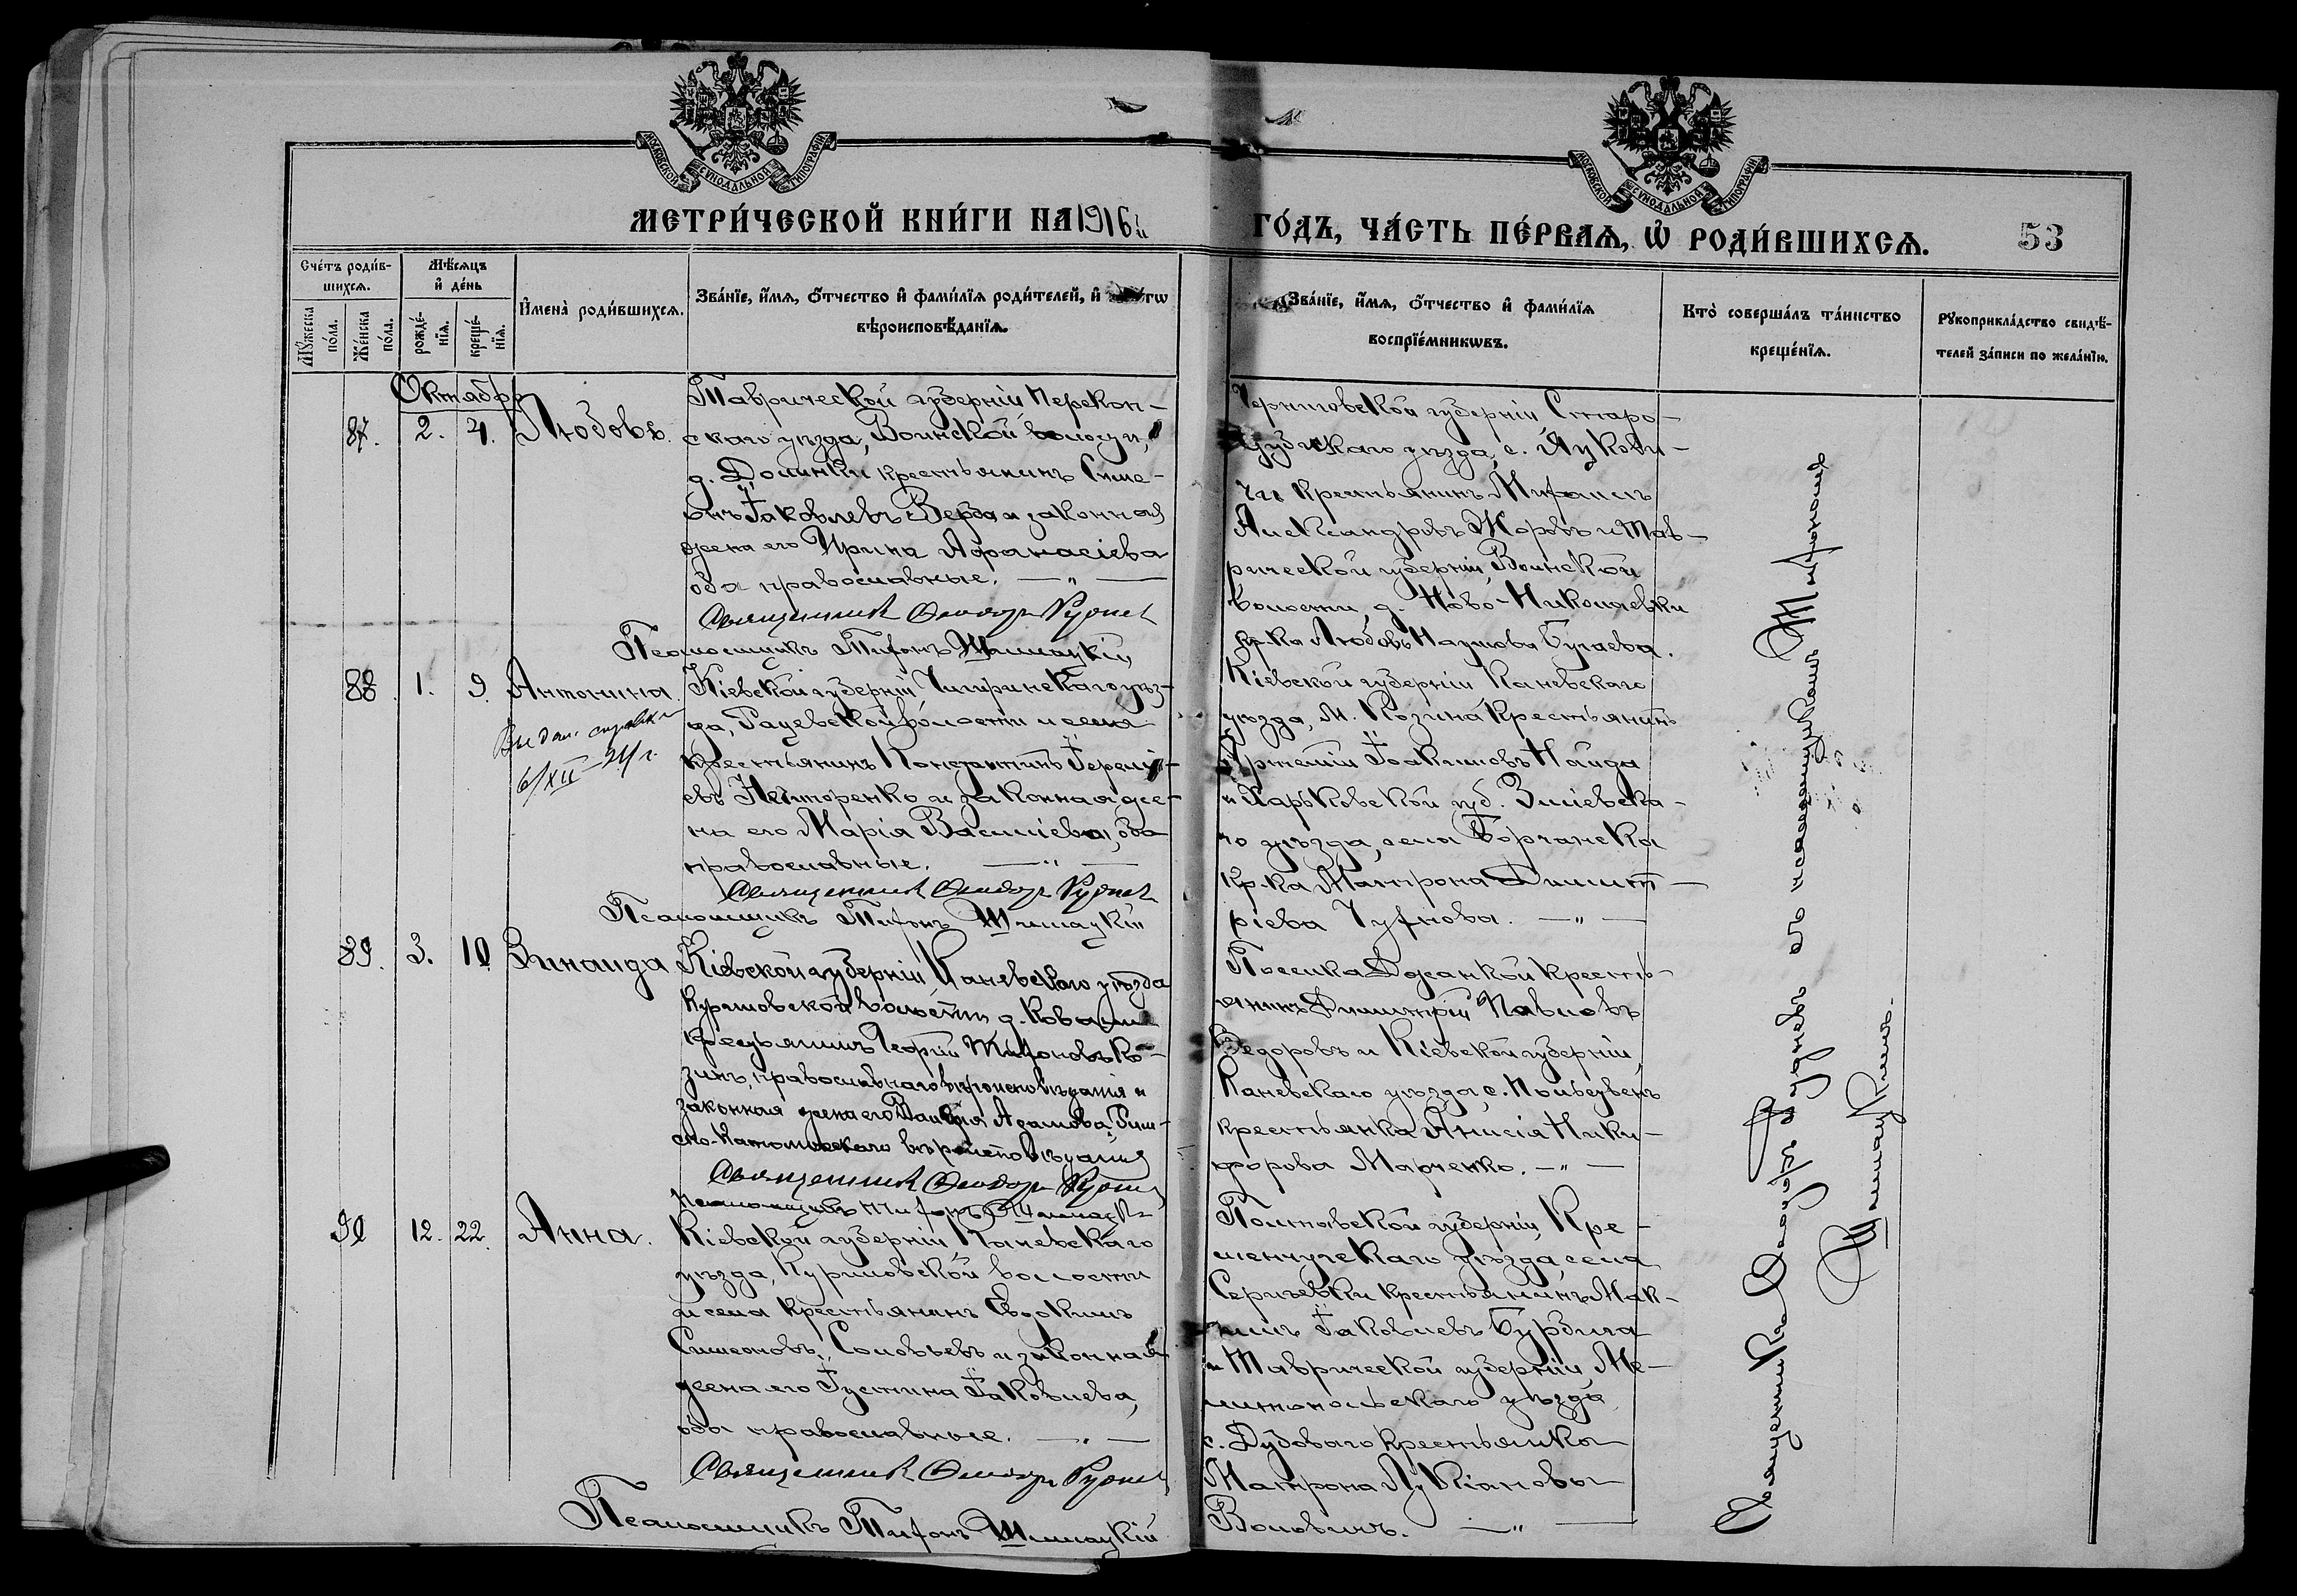 МЕТРИ́ЧЕСКОЙ КНИ́ГИ НА 1916й
ГО́ДЪ, ЧА́СТЬ ПЕ́РВАѦ, Ѡ҆ РОДИ́ВШИХСѦ.
53
Сче́тъ роди́в-
шихсѧ.
Мѣ́сѧцъ
и҆ де́нь
Му́жеска
по́ла.
Же́нска
по́ла.
рожде́-
нїѧ.
креще́-
нїѧ.
И҆мена̀ роди́вшихсѧ.
Зва́нїе, и҆́мѧ, ѻ҆́тчество и҆ фами́лїѧ роди́телей, и҆
вѣроисповѣ́данїѧ.
Зва́нїе, и҆́мѧ, ѻ҆́тчество и҆ фами́лїѧ
воспрїе́мникѡвъ.
Кто̀ соверша́лъ та́инство
креще́нїѧ.
Рꙋкоприкла́дство свидѣ́-
телей за́писи по жела́нїю.
Октябрь
87. 2. 4. Любовь.
Таврической губернiи Перекоп-
скаго уѣзда, Воинской волости,
д. Долинки крестьянинъ Симе-
онъ Iаковлевъ Верда и законная
жена его Ирина Афанасiева
оба православные. — " —
Священникъ Ѳеодоръ Руднев
Псаломщикъ Тихонъ Шимацкiй
Черниговской губернiи Старо-
дубскаго уѣзда, с. Лукови-
чи крестьянинъ Михаилъ
Александровъ Жоровъ и Тав-
рической губернiи, Воинской
волости, д. Ново-Николаевки
кр-ка Любовь Наумова Бугаева.
88. 1. 9. Антонина
Выдана справка
6/XII - 24 г.
Кiевской губернiи Чигиринскаго уѣз-
да, Рацевской волости и села
крестьянинъ Константинъ Iеремi-
евъ Нешторенко и законная же-
на его Марiя Васильева, оба
православные. — " —
Священникъ Ѳеодоръ Руднев
Псаломщикъ Тихонъ Шимацкiй
Кiевской губернiи Каневскаго
уѣзда, м. Козина крестьянинъ
Артемiй Iоакимовъ Найда
и Харьковской губ. Змiевска-
го уѣзда, села
кр-ка Матрона Димит-
рiева Чухнова. — " —
89. 3. 10. Зинаида
Кiевской губернiи Каневскаго уѣзда
волости д.
крестьянинъ Георгiй Тихоновъ Ко-
зинъ, православнаго вѣроисповѣданiя и
законная жена его Адамова, Рим-
ско-Католическаго вѣроисповѣданiя
Священникъ Ѳеодоръ Руднев
Псаломщикъ Тихонъ Шимацкiй
Поселка Джанкой кресть-
янинъ Димитрiй Павловъ
Ѳедоровъ и Кiевской губернiи,
Каневскаго уѣзда, с.
крестьянка Анисiя Ники-
форова Марченко. — " —
90 12. 22. Анна.
Кiевской губернiи, Каневскаго
уѣзда, Куриловской волости
и села крестьянинъ Евдокимъ
Симеоновъ Соловьевъ и законная
жена его Iустина Iаковлева,
оба православные. — " —
Священникъ Ѳеодоръ Руднев
Псаломщикъ Тихонъ Шимацкiй
Полтавской губернiи, Кре-
менчугскаго уѣзда, села
крестьянинъ Мак-
симъ Iаковлевъ Бурдыга
и Таврической губернiи, Ме-
литопольскаго уѣзда,
с. Дубоваго крестьянка
Матрона Лукiанова
Воловикъ. — " —
Священникъ Ѳеодоръ Рудневъ съ псаломщикомъ Тихономъ
Шимацкимъ.